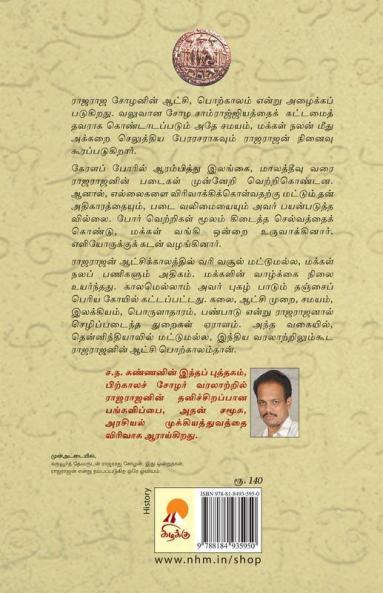 ராஜராஜ சோழனின் ஆட்சி, பொற்காலம் என்று அழைக்கப்
படுகிறது. வலுவான சோழ சாம்ராஜ்ஜியத்தைக் கட்டமைத்
தவராக கொண்டாடப்படும் அதே சமயம், மக்கள் நலன் மீது
அக்கறை செலுத்திய பேரரசராகவும் ராஜராஜன் நினைவு
கூரப்படுகிறார்.
கேரளப் போரில் ஆரம்பித்து இலங்கை, மாலத்தீவு வரை
ராஜராஜனின் படைகள் முன்னேறி வெற்றிகொண்டன.
ஆனால், எல்லைகளை விரிவாக்கிக்கொள்வதற்கு மட்டும் தன்
அதிகாரத்தையும், படை வலிமையையும் அவர் பயன்படுத்த
வில்லை. போர் வெற்றிகள் மூலம் கிடைத்த செல்வத்தைக்
கொண்டு, மக்கள் வங்கி ஒன்றை உருவாக்கினார்.
எளியோருக்குக் கடன் வழங்கினார்.
ராஜராஜன் ஆட்சிக்காலத்தில் வரி வசூல் மட்டுமல்ல, மக்கள்
நலப் பணிகளும் அதிகம். மக்களின் வாழ்க்கை நிலை
உயர்ந்தது. காலமெல்லாம் அவர் புகழ் பாடும் தஞ்சைப்
பெரிய கோயில் கட்டப்பட்டது. கலை, ஆட்சி முறை, சமயம்,
இலக்கியம், பொருளாதாரம், பண்பாடு என்று ராஜராஜனால்
செழிப்படைந்த துறைகள் ஏராளம். அந்த வகையில்,
தென்னிந்தியாவில் மட்டுமல்ல, இந்திய வரலாற்றிலும்கூட
ராஜராஜனின் ஆட்சி பொற்காலம்தான்.
ச.ந. கண்ணனின் இந்தப் புத்தகம்,
பிற்காலச் சோழர் வரலாற்றில்
ராஜராஜனின் தனிச்சிறப்பான
பங்களிப்பை, அதன் சமூக,
அரசியல் முக்கியத்துவத்தை
விரிவாக ஆராய்கிறது.
முன் அட்டையில்,
கருவூர்த் தேவருடன் ராஜராஜ சோழன். இது ஒன்றுதான்
ராஜராஜன் என்று நம்பப்படுகிற ஒரே ஓவியம்.
ரூ. 140
History
கிழக்கு
ISBN 978-81-8493-595-0
9 788184 935950
www.nhm.in/shop